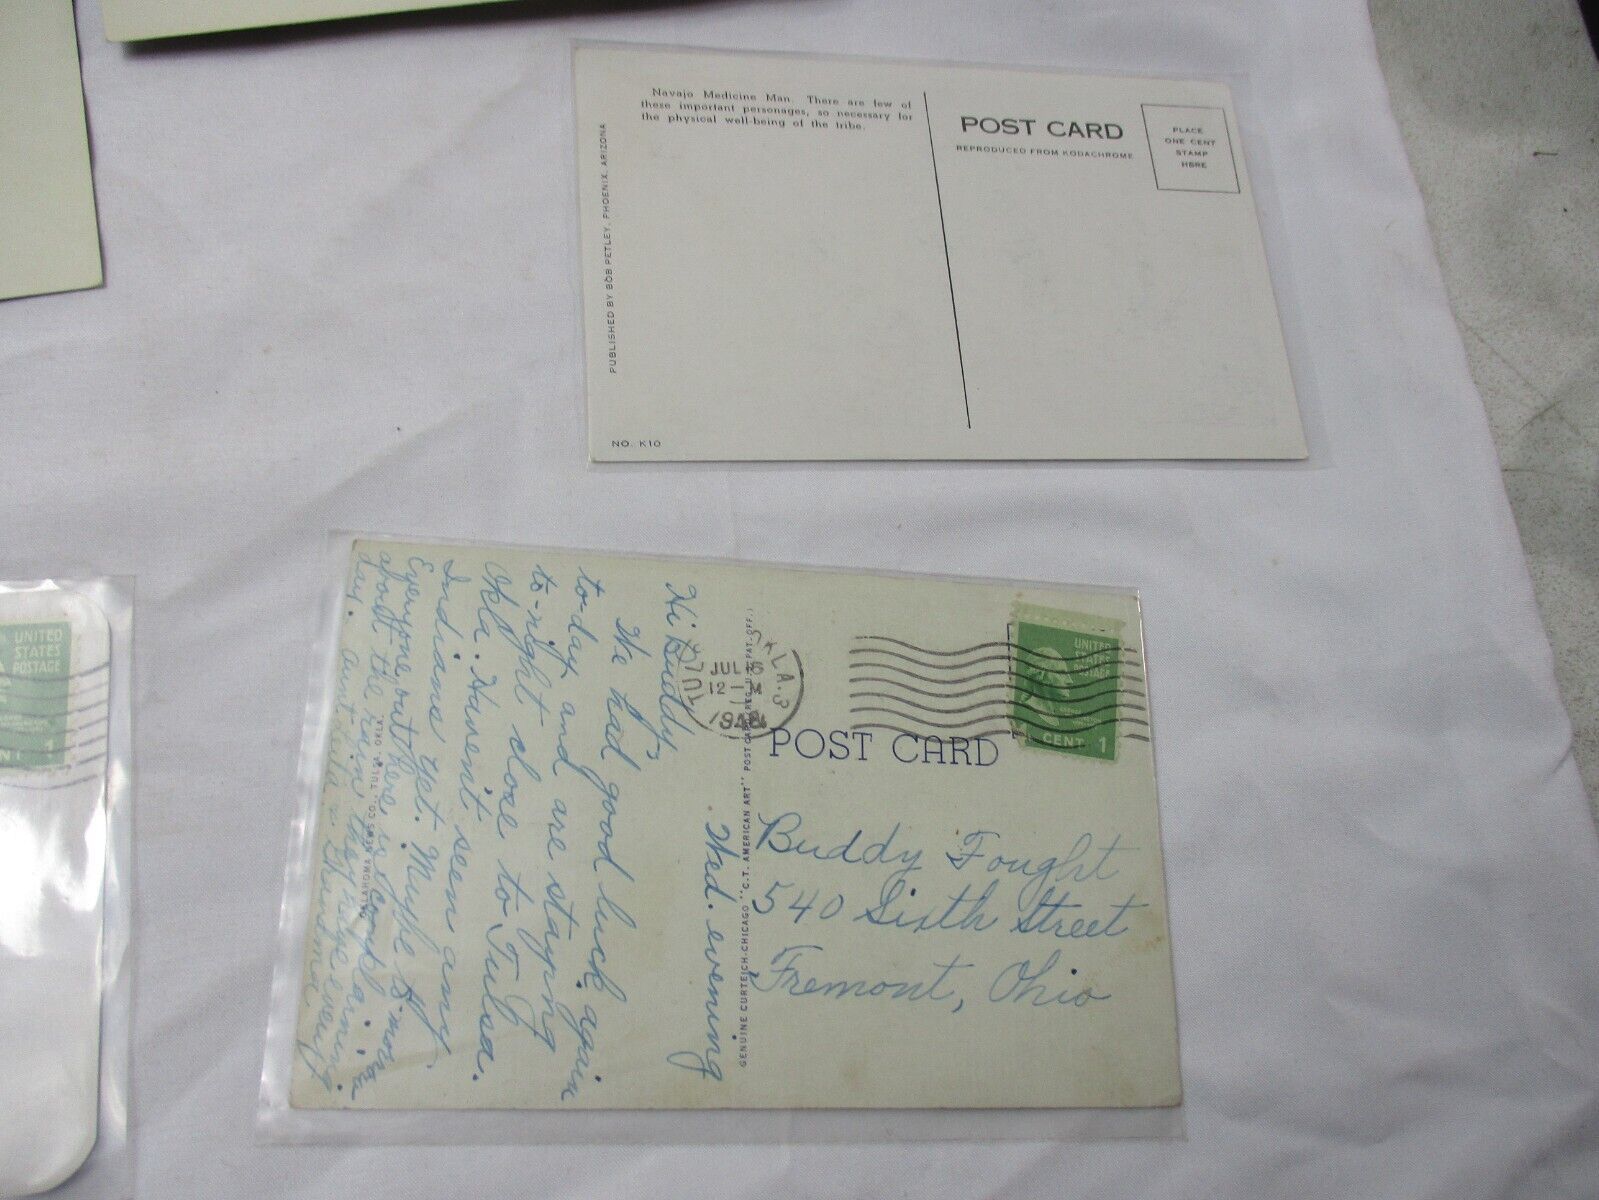 Navajo Medicine Man. There are few of
these important personages, so necessary for
the physical well-being of the tribe.
PUBLISHED BY BOB PETLEY, PHOENIX, ARIZONA
NO. K10
POST CARD
REPRODUCED FROM KODACHROME
PLACE
ONE CENT
STAMP
HERE
Wed. evening
Hi Buddy,
We had good luck again
to-day and are staying
to-night close to Tulsa
Okla. Haven't seen any
Indians yet. Maybe to-morrow.
Everyone out here is complaining
about the rain they have every
day. Aunt
OKLAHOMA NEWS CO., TULSA, OKLA.
GENUINE CURTEICH-CHICAGO "C.T. AMERICAN ART" POST CARD (REG. U.S. PAT. OFF.)
TULSA OKLA. 3
JUL 15
12 - M
1948
POST CARD
UNITED
STATES
POSTAGE
CENT 1
Buddy Fought
540 Sixth Street
Fremont, Ohio
UNITED
STATES
POSTAGE
1